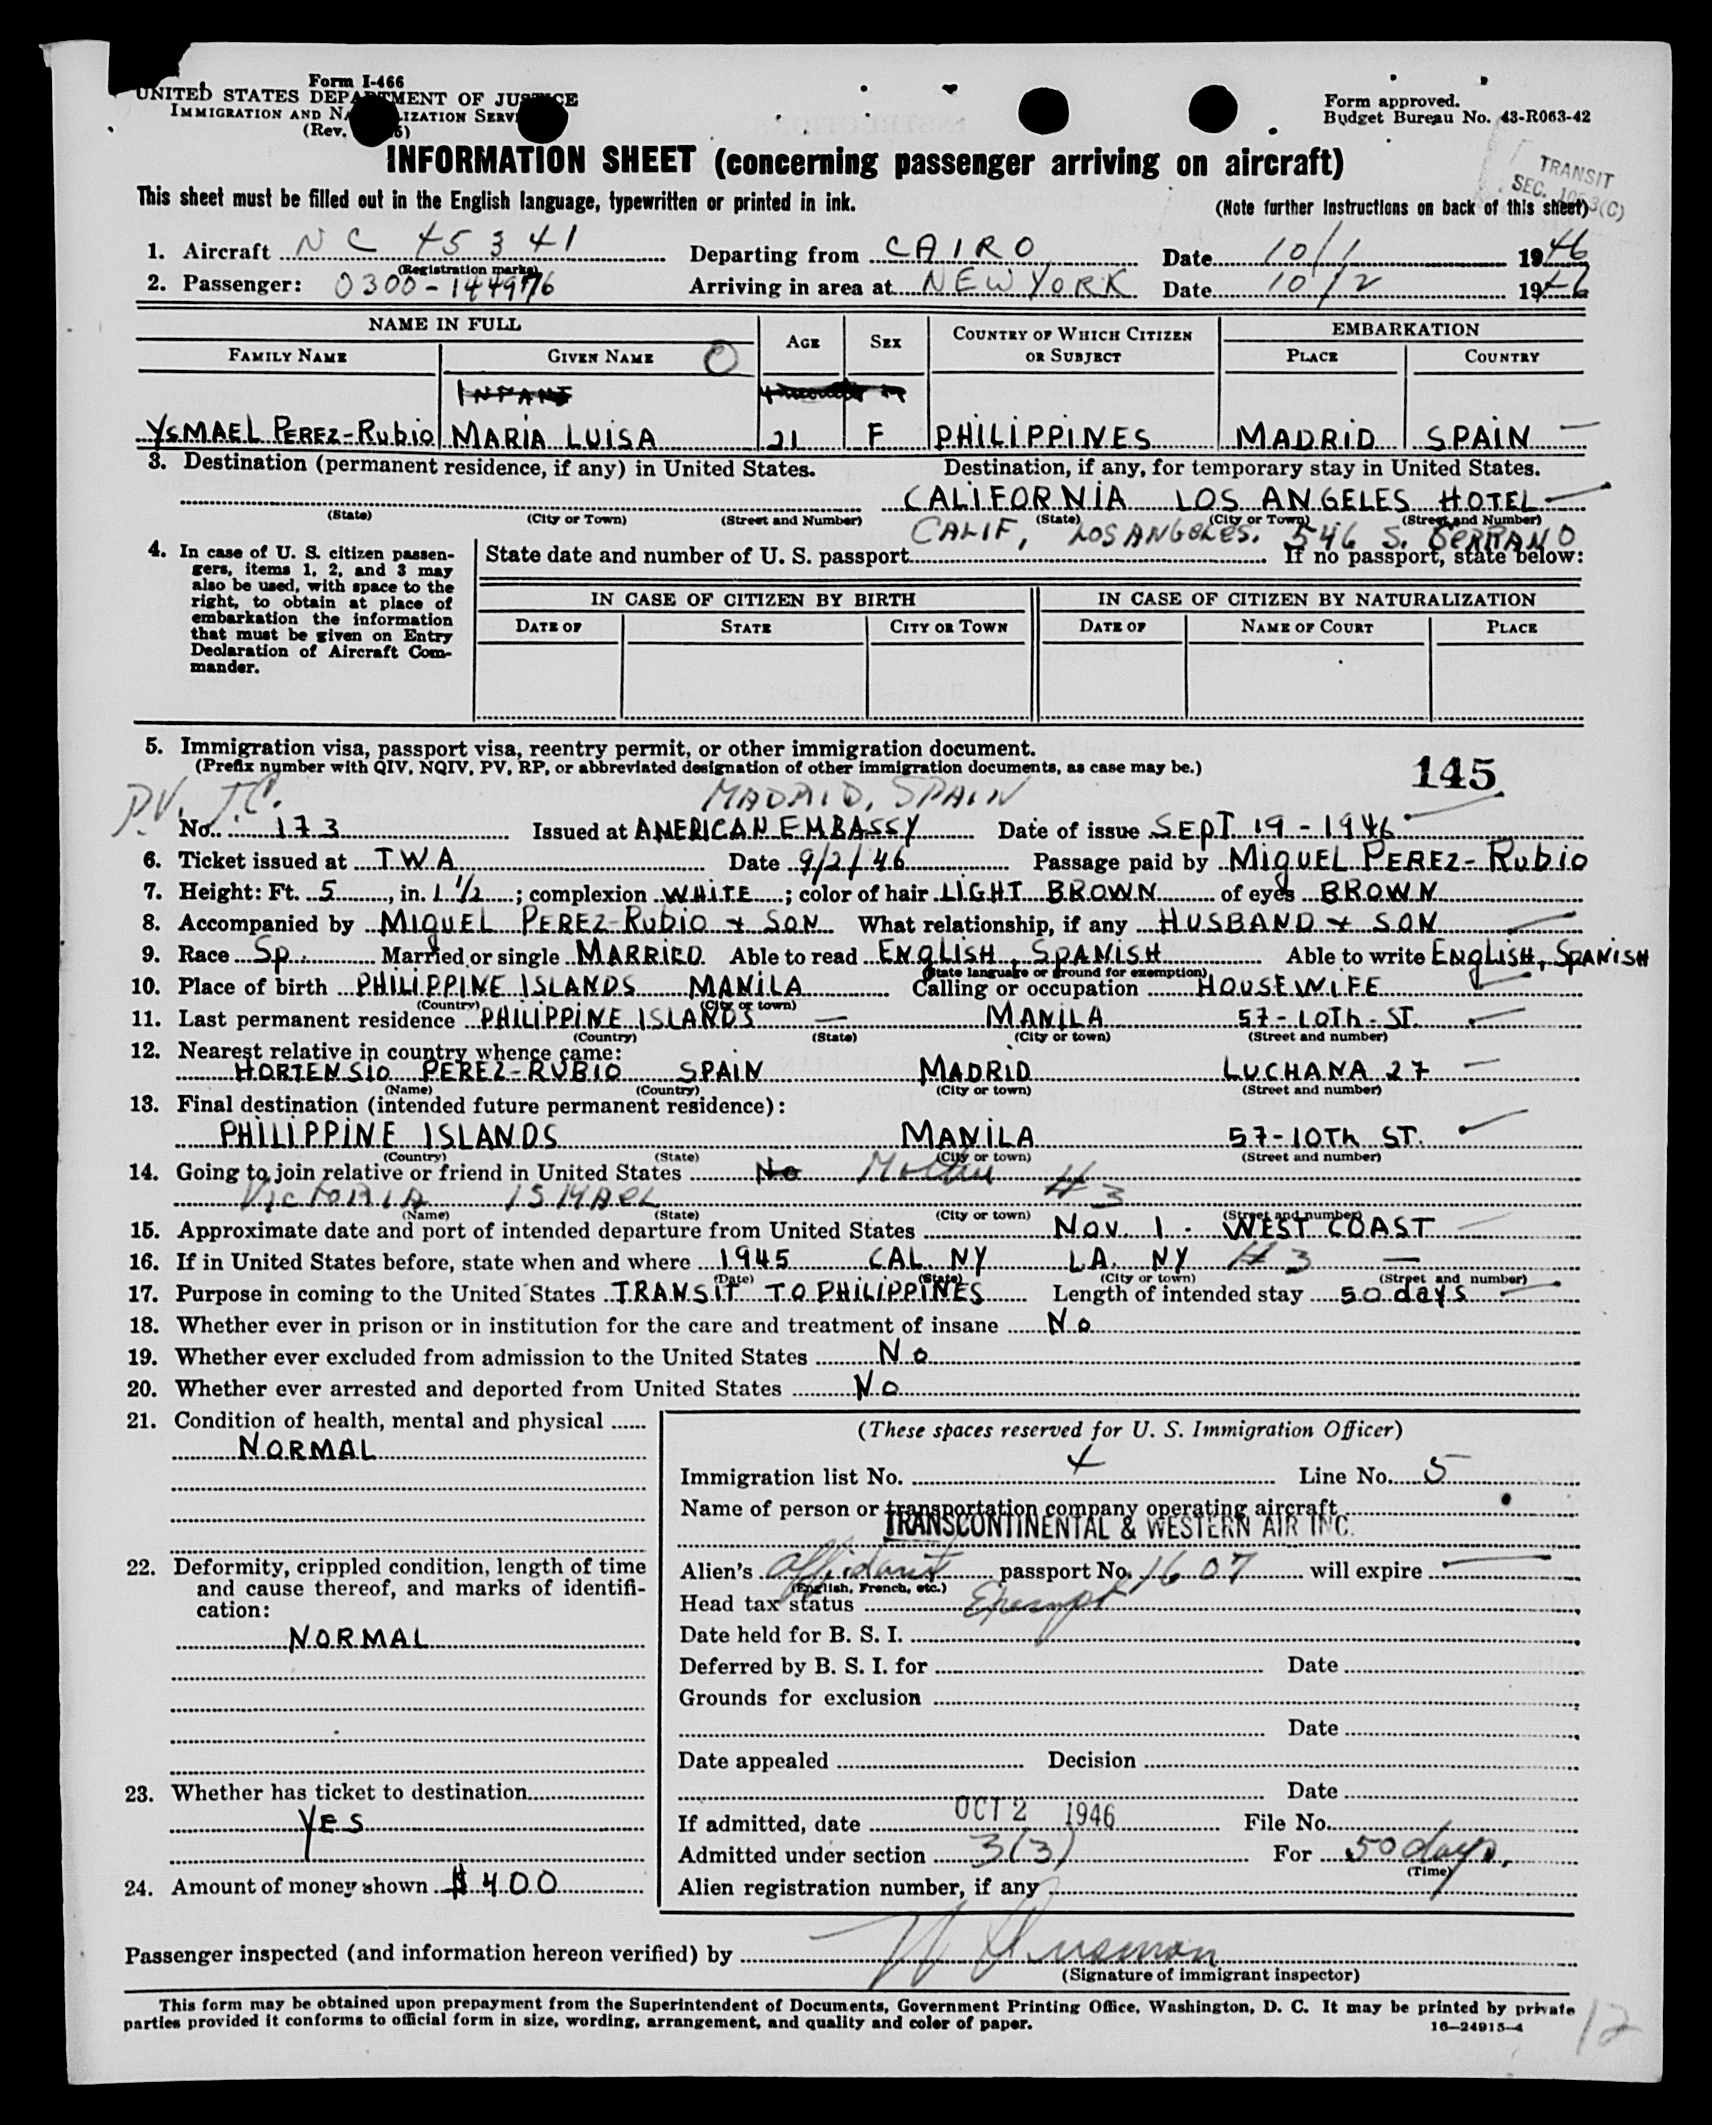 Form I-466
UNITED STATES DEPARTMENT OF JUSTICE
IMMIGRATION AND NATURALIZATION SERVICE
(Rev.
Form approved.
Budget Bureau No. 43-R063-42
INFORMATION SHEET (concerning passenger arriving on aircraft)
TRANSIT
SEC.
This sheet must be filled out in the English language, typewritten or printed in ink.
(Note further instructions on back of this sheet)
1. Aircraft NC 45341 Departing from CAIRO Date 10/1 1946
(Registration marks)
2. Passenger: 0300-144976 Arriving in area at NEW YORK Date 10/2 1946
NAME IN FULL AGE SEX COUNTRY OF WHICH CITIZEN OR SUBJECT EMBARKATION
FAMILY NAME GIVEN NAME PLACE COUNTRY
INFANT
YSMAEL PEREZ-RUBIO MARIA LUISA 21 F PHILIPPINES MADRID SPAIN
3. Destination (permanent residence, if any) in United States. Destination, if any, for temporary stay in United States.
CALIFORNIA LOS ANGELES HOTEL
(State) (City or Town) (Street and Number) (State) (City or Town) (Street and Number)
CALIF, LOS ANGELES. 546 S. SERRANO
4. In case of U. S. citizen passengers, items 1, 2, and 3 may also be used, with space to the right, to obtain at place of embarkation the information that must be given on Entry Declaration of Aircraft Commander.
State date and number of U. S. passport If no passport, state below:
IN CASE OF CITIZEN BY BIRTH IN CASE OF CITIZEN BY NATURALIZATION
DATE OF STATE CITY OR TOWN DATE OF NAME OF COURT PLACE
5. Immigration visa, passport visa, reentry permit, or other immigration document.
(Prefix number with QIV, NQIV, PV, RP, or abbreviated designation of other immigration documents, as case may be.)
145
P.V. T.C. MADRID, SPAIN
No. 173 Issued at AMERICAN EMBASSY Date of issue SEPT 19-1946
6. Ticket issued at TWA Date 9/2/46 Passage paid by MIGUEL PEREZ-RUBIO
7. Height: Ft. 5, in. 1 1/2; complexion WHITE; color of hair LIGHT BROWN of eyes BROWN
8. Accompanied by MIGUEL PEREZ-RUBIO + SON What relationship, if any HUSBAND + SON
9. Race Sp. Married or single MARRIED Able to read ENGLISH, SPANISH Able to write ENGLISH, SPANISH
(State language or ground for exemption)
10. Place of birth PHILIPPINE ISLANDS MANILA Calling or occupation HOUSEWIFE
(Country) (City or town)
11. Last permanent residence PHILIPPINE ISLANDS — MANILA 57-10Th-ST.
(Country) (State) (City or town) (Street and number)
12. Nearest relative in country whence came:
HORTENSIO PEREZ-RUBIO SPAIN MADRID LUCHANA 27
(Name) (Country) (City or town) (Street and number)
13. Final destination (intended future permanent residence):
PHILIPPINE ISLANDS MANILA 57-10Th ST.
(Country) (State) (City or town) (Street and number)
14. Going to join relative or friend in United States No Mother #3
VICTORIA ISMAEL
(Name) (State) (City or town) (Street and number)
15. Approximate date and port of intended departure from United States NOV. 1 - WEST COAST
16. If in United States before, state when and where 1945 CAL. NY LA. NY #3 —
(Date) (State) (City or town) (Street and number)
17. Purpose in coming to the United States TRANSIT TO PHILIPPINES Length of intended stay 50 days
18. Whether ever in prison or in institution for the care and treatment of insane No
19. Whether ever excluded from admission to the United States No
20. Whether ever arrested and deported from United States No
21. Condition of health, mental and physical
NORMAL
22. Deformity, crippled condition, length of time and cause thereof, and marks of identification:
NORMAL
23. Whether has ticket to destination
YES
24. Amount of money shown $400
(These spaces reserved for U. S. Immigration Officer)
Immigration list No. 4 Line No. 5
Name of person or transportation company operating aircraft
TRANSCONTINENTAL & WESTERN AIR INC.
Alien's affidavit passport No. 1607 will expire —
(English, French, etc.)
Head tax status Exempt
Date held for B. S. I.
Deferred by B. S. I. for Date
Grounds for exclusion
Date
Date appealed Decision
Date
If admitted, date OCT 2 1946 File No.
Admitted under section 3(3) For 50 days.
(Time)
Alien registration number, if any
Passenger inspected (and information hereon verified) by
(Signature of immigrant inspector)
This form may be obtained upon prepayment from the Superintendent of Documents, Government Printing Office, Washington, D. C. It may be printed by private
parties provided it conforms to official form in size, wording, arrangement, and quality and color of paper.
16—24915-4
12